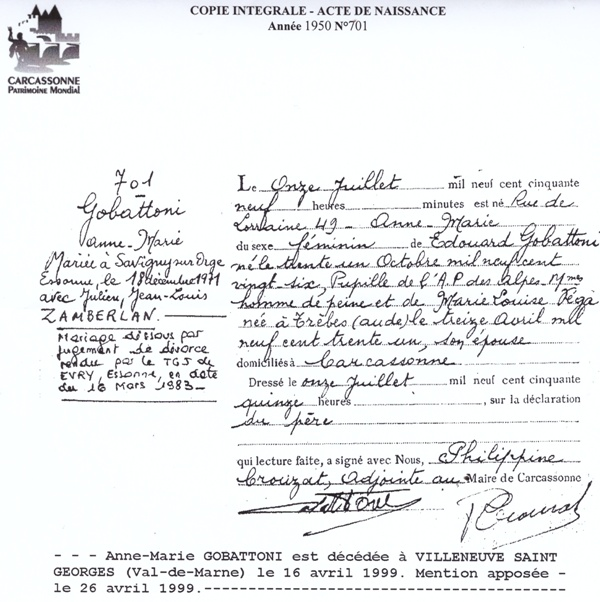 COPIE INTEGRALE - ACTE DE NAISSANCE
Année 1950 N°701
CARCASSONNE
PATRIMOINE MONDIAL
701
Gobattoni
Anne-Marie
Mariée à Savigny sur Orge
Essonne, le 18 décembre 1971
avec Julien, Jean-Louis
ZAMBERLAN.
Mariage dissous par
jugement de divorce
rendu par le TGI de
EVRY, Essonne, en date
du 16 Mars 1983-
Le Onze Juillet mil neuf cent cinquante
neuf heures minutes est né Rue de
Lorraine 49 - Anne-Marie
du sexe féminin de Edouard Gobattoni
né le trente un Octobre mil neuf cent
vingt six, Pupille de l'A.P. des Alpes Mmes
homme de peine et de Marie Louise Féga
née à Trèbes (aude) le treize Avril mil
neuf cent trente un, son épouse
domiciliés à Carcassonne
Dressé le onze juillet mil neuf cent cinquante
quinze heures , sur la déclaration
du père
qui lecture faite, a signé avec Nous, Philippine
Crouzat, Adjointe au Maire de Carcassonne
- - - Anne-Marie GOBATTONI est décédée à VILLENEUVE SAINT
GEORGES (Val-de-Marne) le 16 avril 1999. Mention apposée -
le 26 avril 1999.----------------------------------------